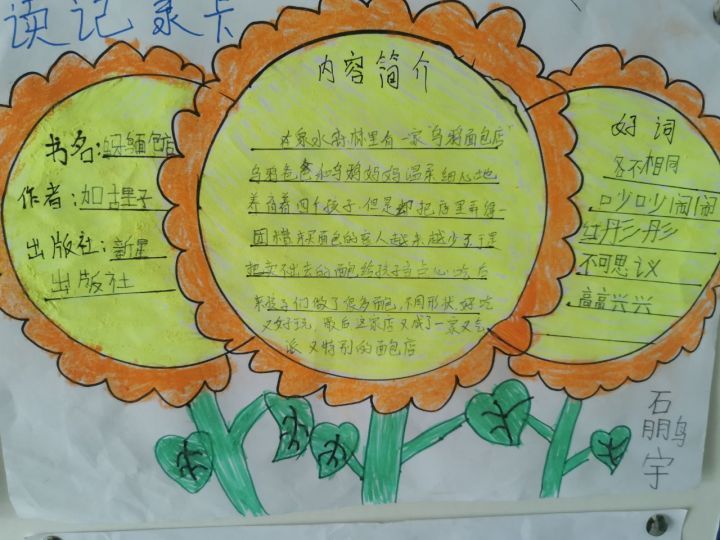 读记录卡
书名:乌鸦面包店
作者:加古里子
出版社:新星
出版社
内容简介
在泉水森林里有一家"乌鸦面包店"
乌鸦爸爸和乌鸦妈妈温柔细心地
养育着四个孩子,但是却把店里弄得一
团糟 来买面包的客人越来越少 于是
把卖不出去的面包给孩子当点心吃 后
来孩子们做了很多面包,不同形状,好吃
又好玩,最后这家店又成了一家又气
派 又特别的面包店
好词
各不相同
吵吵闹闹
红彤彤
不可思议
高高兴兴
石
鹏
宇